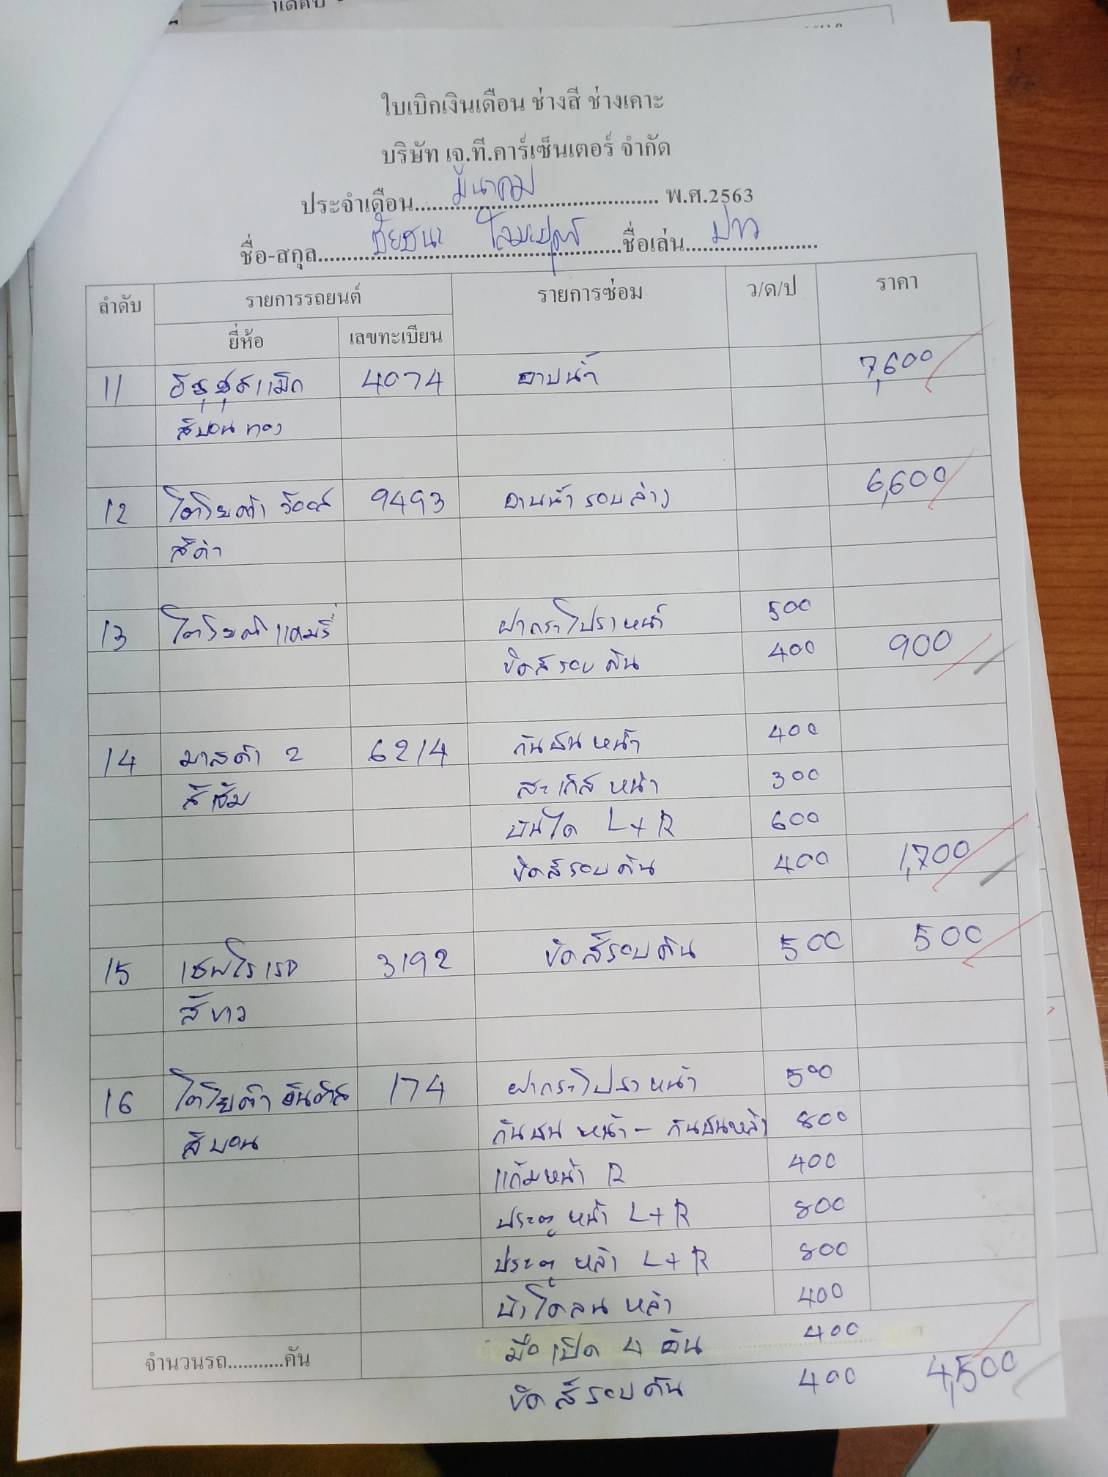 ใบเบิกเงินเดือน ช่างสี ช่างเคาะ
บริษัท เจ.ที.คาร์เซ็นเตอร์ จำกัด
ประจำเดือน มีนาคม พ.ศ.2563
ชื่อ-สกุล ชัยชนะ ชื่อเล่น ปาว
ลำดับ รายการรถยนต์ รายการซ่อม ว/ด/ป ราคา
ยี่ห้อ เลขทะเบียน
11 อีซูซุดีแม็ก 4074 อาบน้ำ 7,600
สีบอนทอง
12 โตโยต้า วีออส 9493 อาบน้ำ รอบล่าง 6,600
สีดำ
13 โตโยต้าแคมรี่ ฝากระโปรงหน้า 500
ขัดสีรอบคัน 400 900
14 มาสด้า 2 6214 กันชนหน้า 400
สีส้ม สะเกิสหน้า 300
บันได L+R 600
ขัดสีรอบคัน 400 1,700
15 เชฟโรเรต 3192 ขัดสีรอบคัน 500 500
สีขาว
16 โตโยต้า อันติส 174 ฝากระโปรงหน้า 500
สีบอน กันชนหน้า - กันชนหลัง 800
แก้มหน้า R 400
ประตูหน้า L+R 800
ประตู หลัง L+R 800
บังโคลนหลัง 400
จำนวนรถ...........คัน มือเปิด 4 อัน 400
ขัดสีรอบคัน 400 4,500